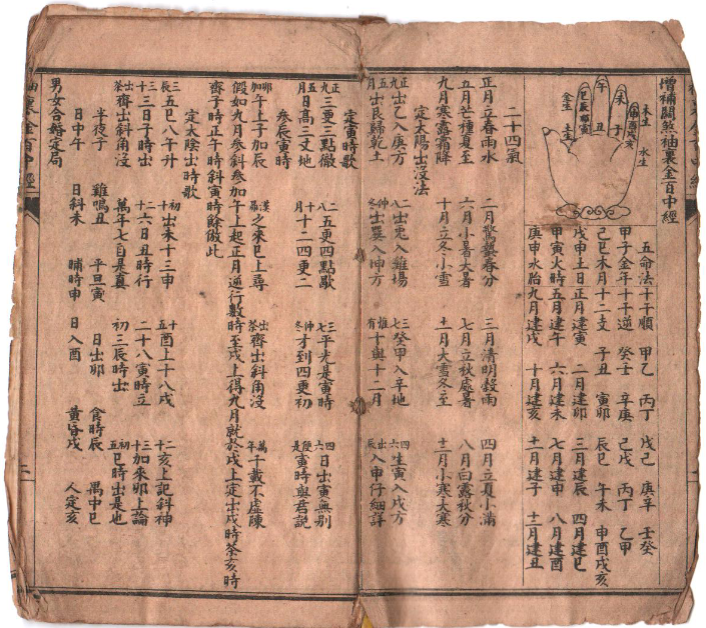 增補關煞袖裏金百中經
午
未
巳辰卯寅
申酉戌亥
丑
子
木生
水生
金生
土
五命法十干順 甲乙 丙丁 戊己 庚辛 壬癸
甲子金年十干逆 癸壬 辛庚 己戊 丙丁 乙甲
己巳木月十二支 子丑 寅卯 辰巳 午未 申酉戌亥
戊申土日正月建寅 二月建卯 三月建辰 四月建巳
甲寅火時五月建午 六月建未 七月建申 八月建酉
庚申水胎九月建戌 十月建亥 十一月建子 十二月建丑
二十四氣
正月立春雨水 二月驚蟄春分 三月清明穀雨 四月立夏小滿
五月芒種夏至 六月小暑大暑 七月立秋處暑 八月白露秋分
九月寒露霜降 十月立冬小雪 十一月大雪冬至 十二月小寒大寒
定太陽出沒法
正九出乙入庚方 二八出兎入雞場 三七癸甲入辛地 四六生寅入戌方
五月出艮歸乾土 仲冬出巽入坤方 惟有十與十二月 出辰入申仔細詳
定寅時歌
正九五更三點徹 二八五更四點歇 三七平光是寅時 四六日出寅無別
五月日高三丈地 十月十二四更二 仲冬才到四更初 便是寅時與君説
參辰寅時
卯加午上子加辰 漢羅之來巳上尋 出茶齊出斜角沒 萬年千載不虛陳
假如九月參斜參加午上起正月逆行數時至戌上得九月就於戌上定出戌時茶亥時
齊子時正午時斜寅時餘倣此
定太陰出時歌
三辰五巳八午升 初十出未十三申 十五酉上十八戌 二十亥上記斜神
二十三日子時出 二十六日丑時行 二十八寅時立 三十加來卯上論
出茶齊出斜角沒 萬年七百是真 初三辰時出 初五巳時出是也
半夜子 雞鳴丑 平旦寅 日出卯 食時辰 禺中巳
日中午 日斜未 晡時申 日入酉 黃昏戌 人定亥
男女合婚定局
袖裏金百中經
二